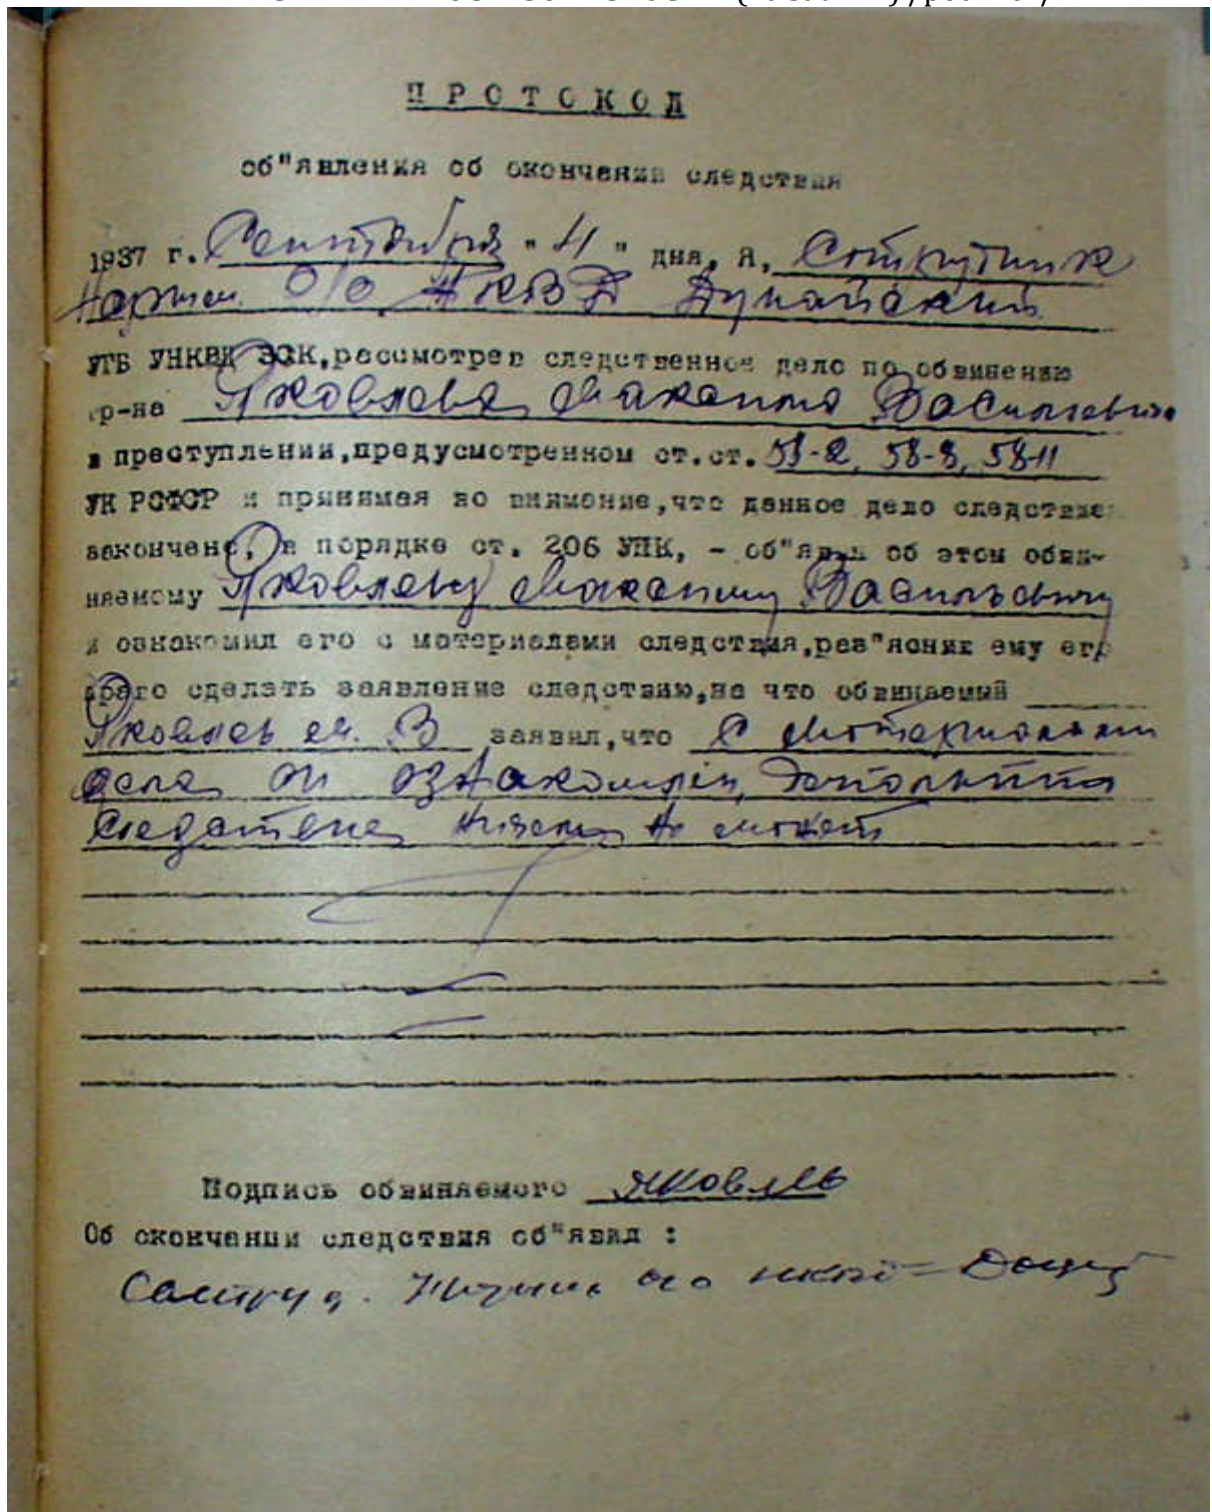 ПРОТОКОЛ
об"явления об окончании следствия
1937 г. Сентября " 11 " дня, я, Сотрудник
Нарым. О/О НКВД Дунайский
УГБ УНКВД ЗСК, рассмотрев следственное дело по обвинению
гр-на Яковлева Максима Васильевича
в преступлении, предусмотренном ст.ст. 58-2, 58-8, 58-11
УК РСФСР и принимая во внимание, что данное дело следствием
закончено, в порядке ст. 206 УПК, - об"явил об этом обви-
няемому Яковлеву Максиму Васильевичу
и ознакомил его с материалами следствия, раз"яснив ему его
право сделать заявление следствию, на что обвиняемый
Яковлев М. В заявил, что С материалами
дела он ознакомлен, дополнить
следствие ничем не может
Подпись обвиняемого Яковлев
Об окончании следствия об"явил :
Сотруд. Нарым о/о НКВД